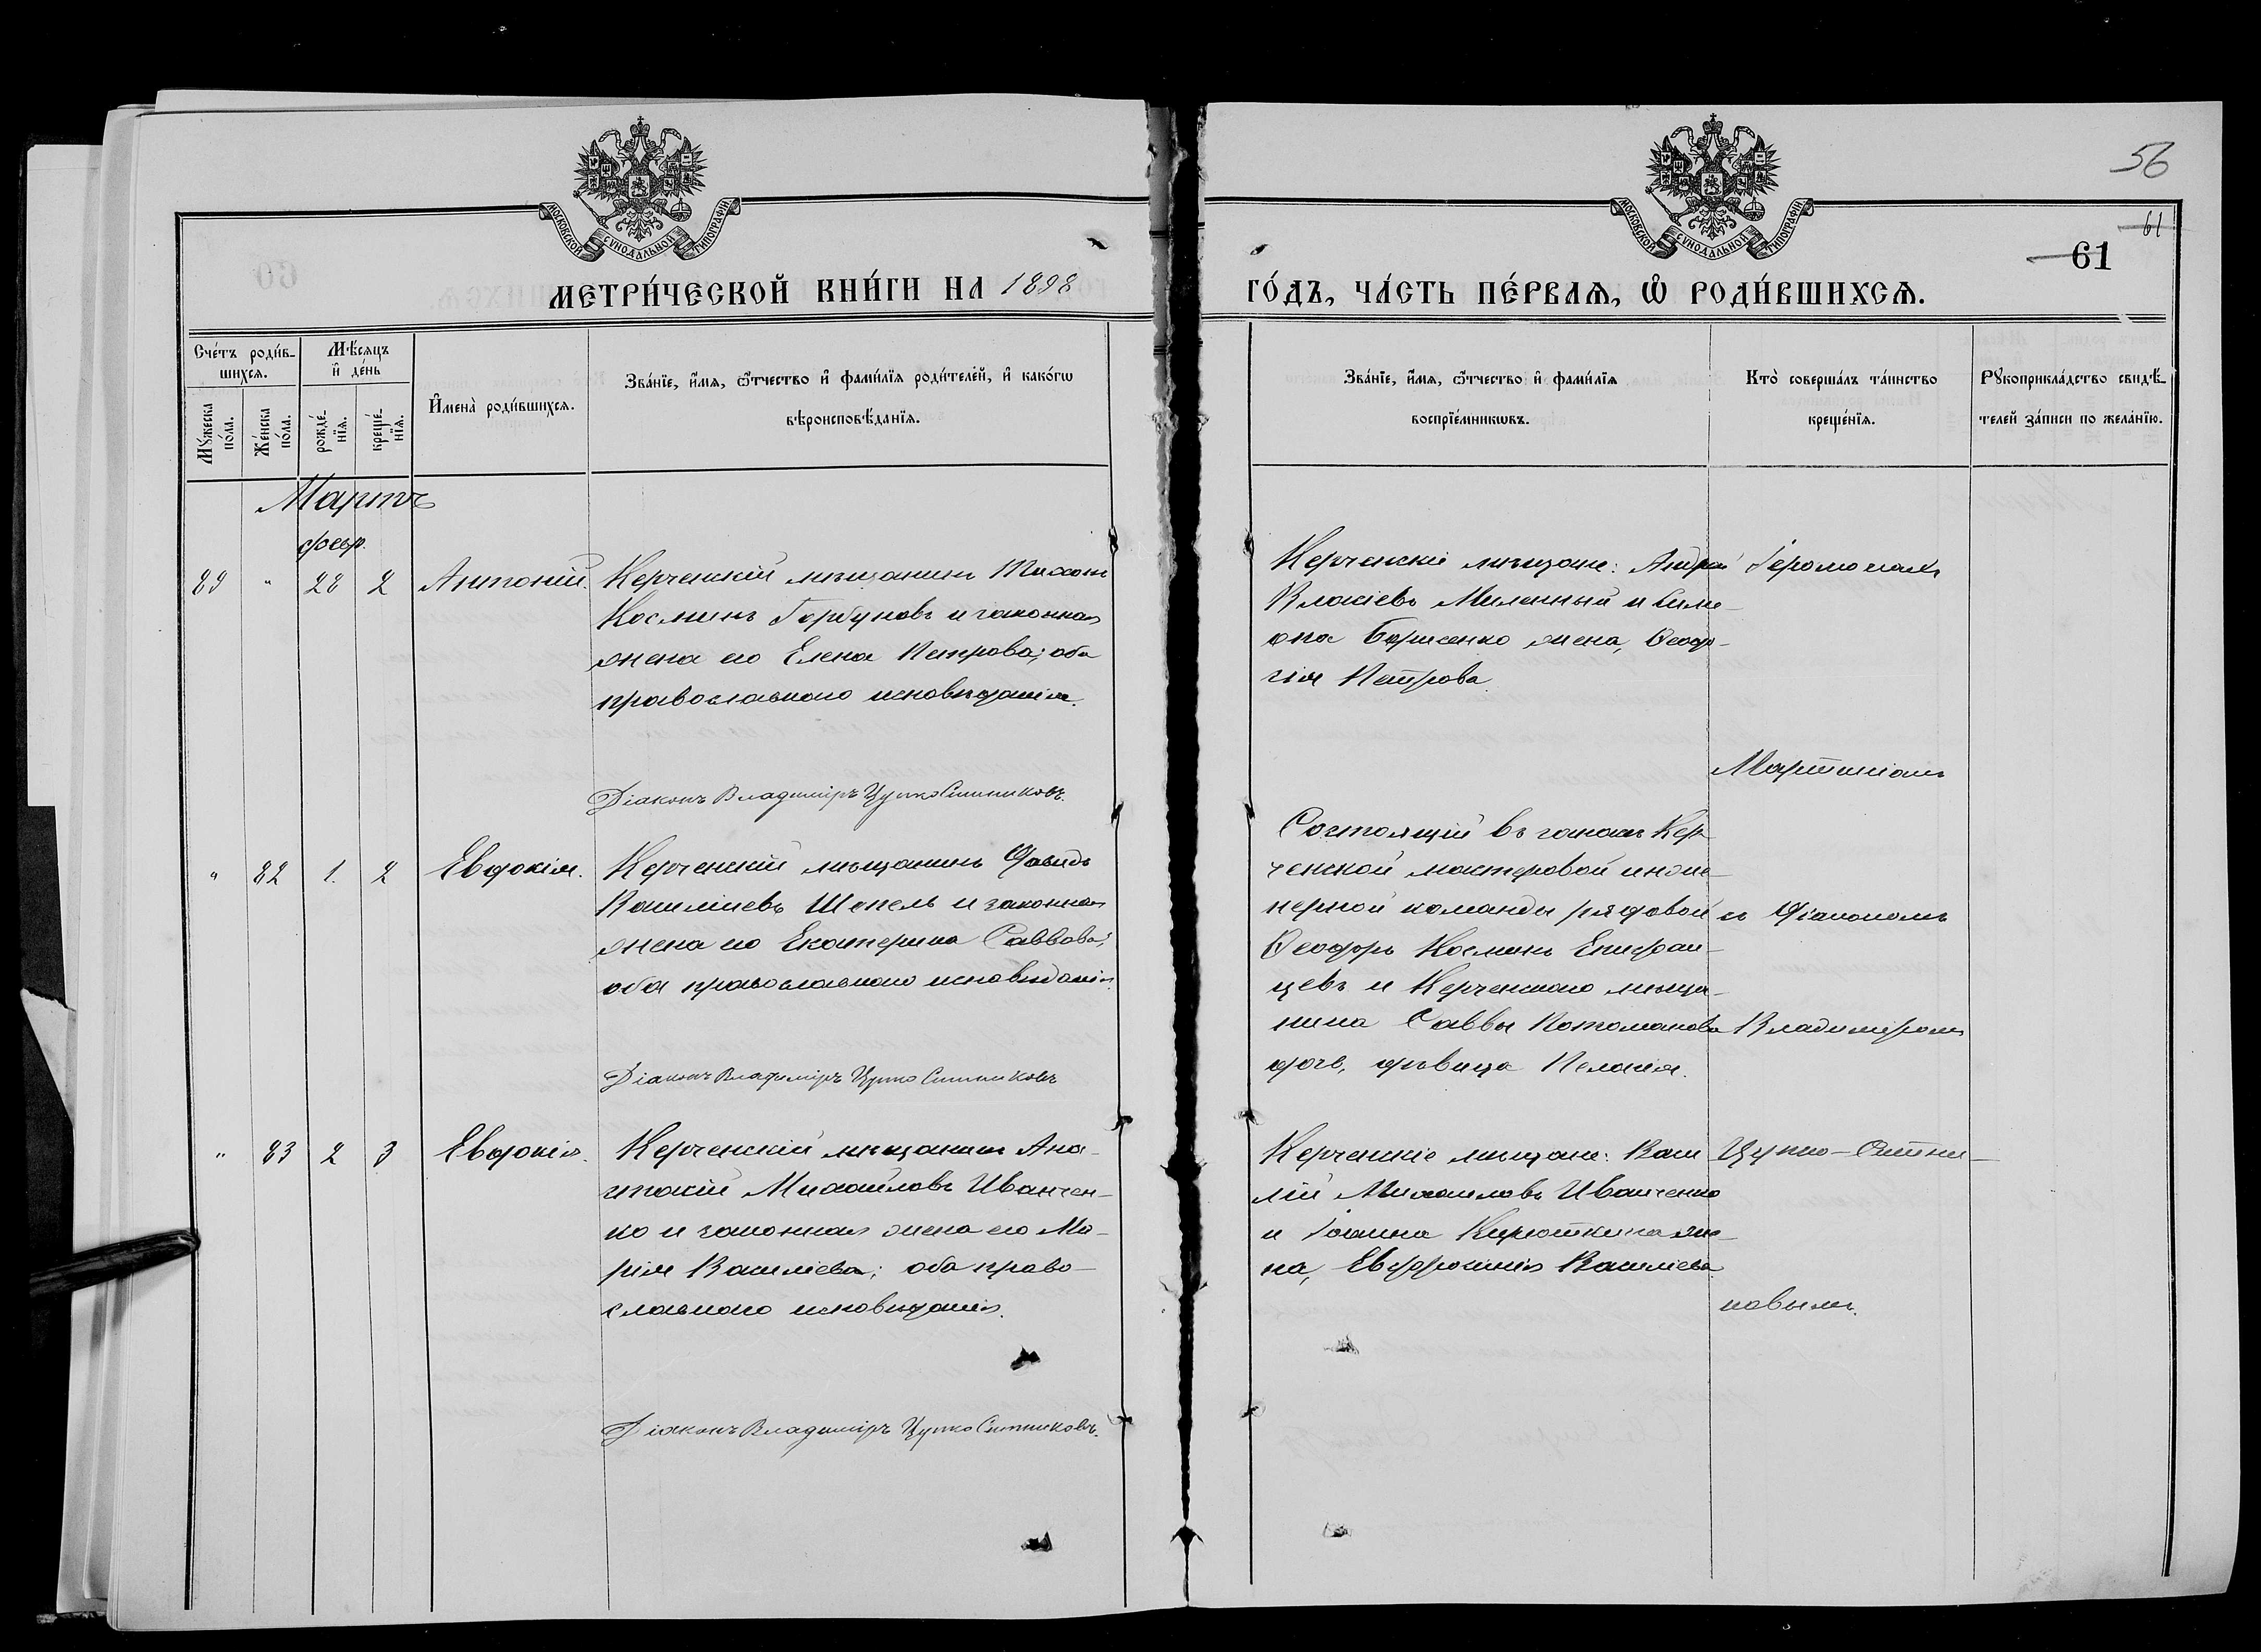 56
61
61
МОСКОВСКОЙ СѴНОДАЛЬНОЙ ТИПОГРАФІИ
МОСКОВСКОЙ СѴНОДАЛЬНОЙ ТИПОГРАФІИ
МЕТРИ́ЧЕСКОЙ КНИ́ГИ НА 1898
ГО́ДЪ, ЧА́СТЬ ПЕ́РВАѦ, Ѽ РОДИ́ВШИХСѦ.
Сче́тъ роди́в-
шихсѧ.
Мѣ́сѧцъ
и҆ де́нь
И҆мена̀ роди́вшихсѧ.
Зва́нїе, и҆́мѧ, ѻ҆́тчество и҆ фами́лїѧ роди́телей, и҆ како́гѡ
вѣроисповѣ́данїѧ.
Мꙋ́жеска по́ла.
Же́нска по́ла.
рожде́нїѧ.
креще́нїѧ.
Зва́нїе, и҆́мѧ, ѻ҆́тчество и҆ фами́лїѧ
воспрїе́мникѡвъ.
Кто̀ соверша́лъ та́инство
креще́нїѧ.
Рꙋкоприкла́дство свидѣ́-
телей за́писи по жела́нїю.
Мартъ
февр.
89 " 28 2 Антоній. Керченскій мѣщанинъ Тихонъ
Косминъ Горбуновъ и законная
жена его Елена Петрова; оба
православнаго исповѣданія.
Діаконъ Владиміръ Цупко Ситниковъ.
Керченскіе мѣщане: Андрей
Власіевъ Миленный и Симе-
она Борисенко жена, Геор-
гія Петрова.
Іеромонахъ
Мартиніанъ
" 82 1. 2 Евдокія. Керченскій мѣщанинъ Давидъ
Василіевъ Шепель и законная
жена его Екатерина Саввова;
оба православнаго исповѣданія.
Діаконъ Владиміръ Цупко Ситниковъ
Состоящій въ запасѣ Кер-
ченской мастеровой инже-
нерной команды рядовой
Ѳеодоръ Косминъ Епифан-
цевъ и Керченскаго мѣща-
нина Саввы Котоманова
дочь, дѣвица Пелагія.
съ Діакономъ
Владиміромъ
" 83 2 3 Евдокія. Керченскій мѣщанинъ Ана-
толій Михайловъ Иванчен-
ко и законная жена его Ма-
рія Василіева; оба право-
славнаго исповѣданія.
Діаконъ Владиміръ Цупко Ситниковъ.
Керченскіе мѣщане: Васи-
лій Михаиловъ Иванченко
и Іоанна Кирюткина же-
на, Евфросинія Василіева.
Цупко-Ситни-
ковымъ.